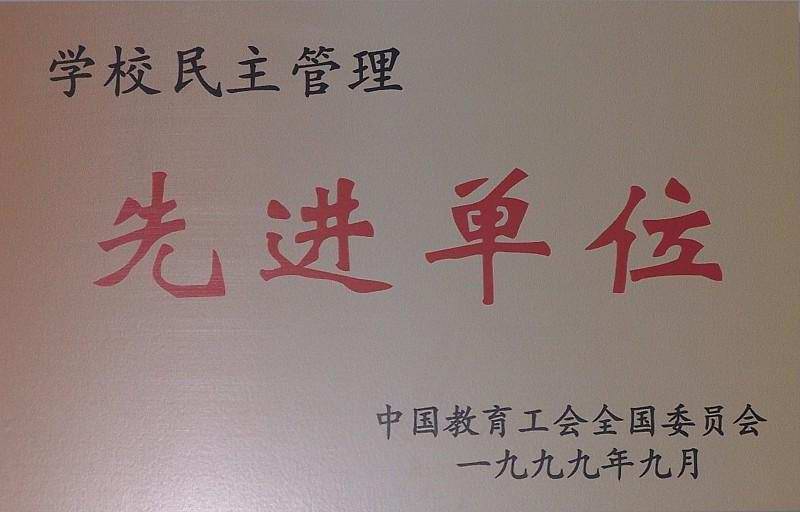 学校民主管理
先进单位
中国教育工会全国委员会
一九九九年九月